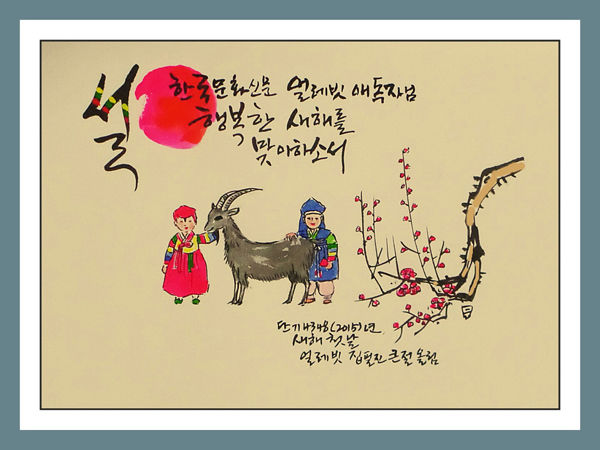 설
한국문화신문 얼레빗 애독자님
행복한 새해를
맞이하소서
단기4348(2015)년
새해 첫날
얼레빗 집필진 큰절 올림